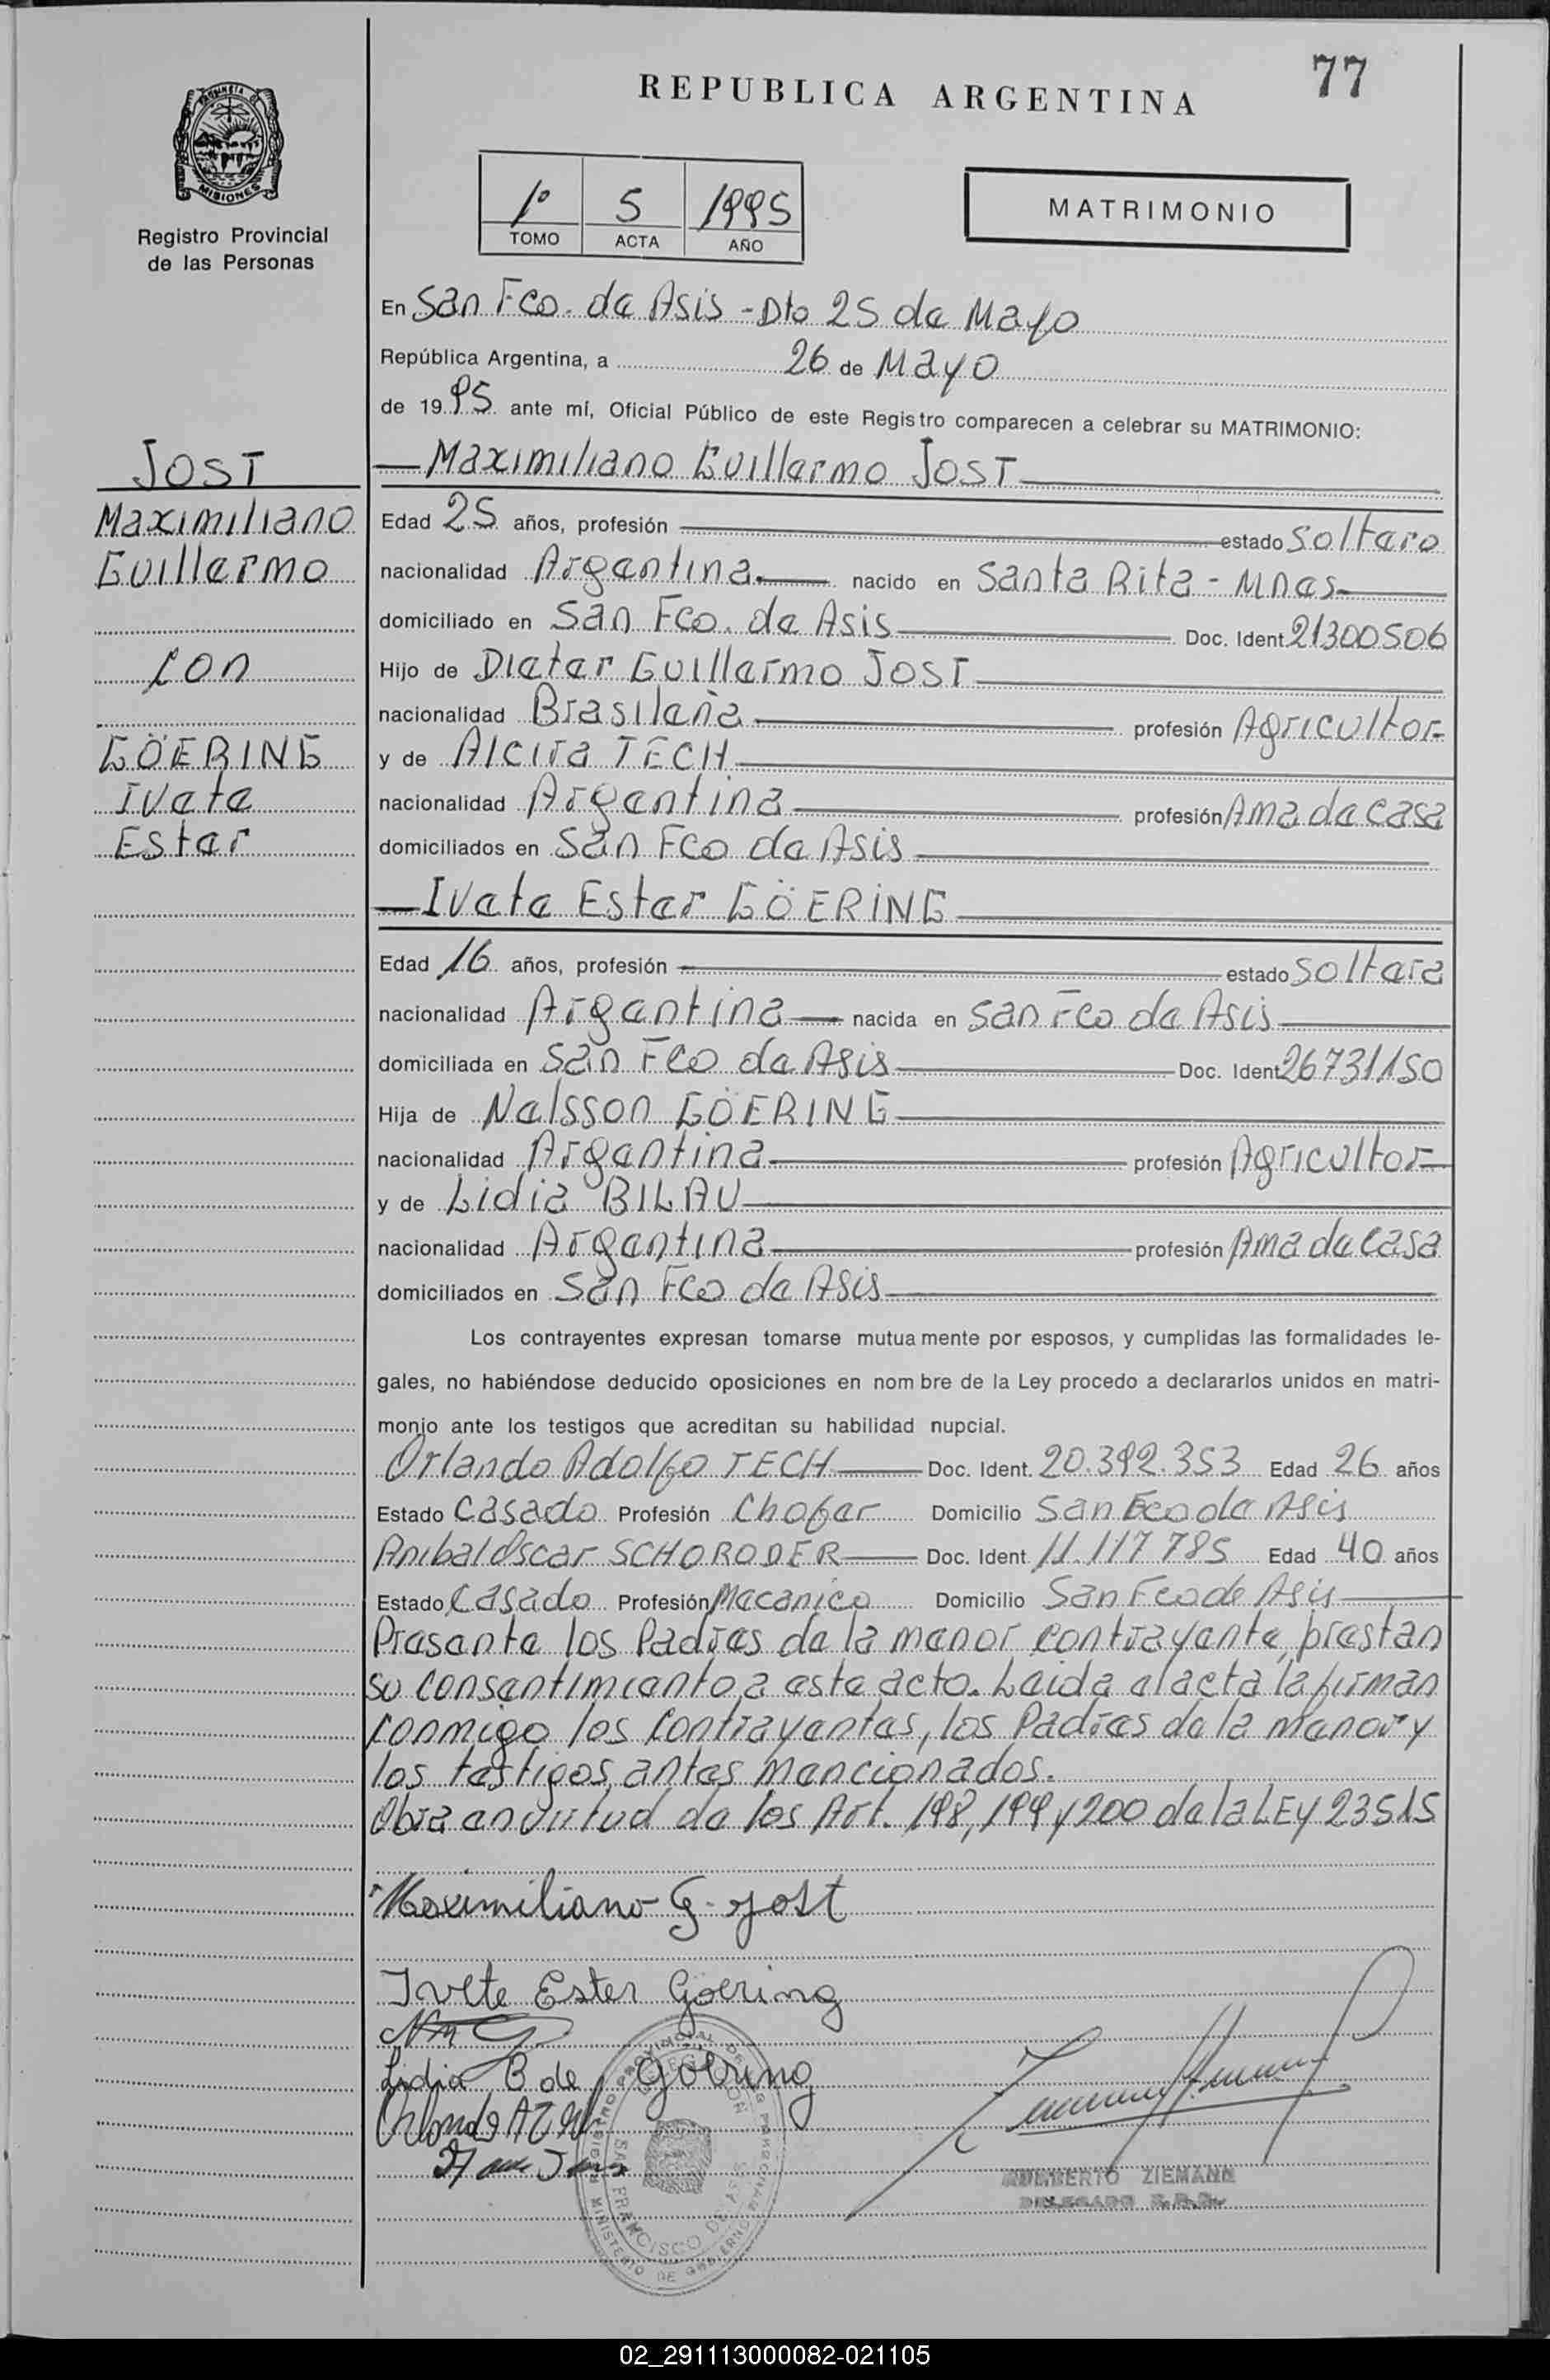 77
REPUBLICA ARGENTINA
PROVINCIA DE
MISIONES
Registro Provincial
de las Personas
1º 5 1995
TOMO ACTA AÑO
MATRIMONIO
En San Fco. de Asis - Dto 25 de Mayo
República Argentina, a 26 de Mayo
de 1995 ante mí, Oficial Público de este Registro comparecen a celebrar su MATRIMONIO:
JOST
Maximiliano
Guillermo
con
GÖERING
Ivete
Ester
Maximiliano Guillermo JOST
Edad 25 años, profesión estado Soltero
nacionalidad Argentina nacido en Santa Rita - Mnes
domiciliado en San Fco. de Asis Doc. Ident 21300506
Hijo de Dieter Guillermo JOST
nacionalidad Brasileña profesión Agricultor
y de Alcira TECH
nacionalidad Argentina profesión Ama de casa
domiciliados en San Fco de Asis
Ivete Ester GÖERING
Edad 16 años, profesión estado Soltera
nacionalidad Argentina nacida en San Fco de Asis
domiciliada en San Fco de Asis Doc. Ident 26731150
Hija de Nelsson GÖERING
nacionalidad Argentina profesión Agricultor
y de Lidia BILAU
nacionalidad Argentina profesión Ama de casa
domiciliados en San Fco de Asis
Los contrayentes expresan tomarse mutuamente por esposos, y cumplidas las formalidades le-
gales, no habiéndose deducido oposiciones en nombre de la Ley procedo a declararlos unidos en matri-
monio ante los testigos que acreditan su habilidad nupcial.
Orlando Adolfo TECH Doc. Ident. 20.392.353 Edad 26 años
Estado Casado Profesión Chofer Domicilio San Fco de Asis
Anibal Oscar SCHORODER Doc. Ident 11.117 785 Edad 40 años
Estado Casado Profesión Mecanico Domicilio San Fco de Asis
Presente los Padres de la menor contrayente, prestan
su consentimiento a este acto. Leida el acta la firman
conmigo los contrayentes, los Padres de la menor y
los testigos antes mencionados.
Obra en virtud de los Art. 198, 199 y 200 de la LEY 23515
Maximiliano G. Jost
Ivete Ester Goering
Lidia B de Göering
HUMBERTO ZIEMANN
DELEGADO
SAN FRANCISCO DE ASIS
MINISTERIO DE GOBIERNO
02_291113000082-021105